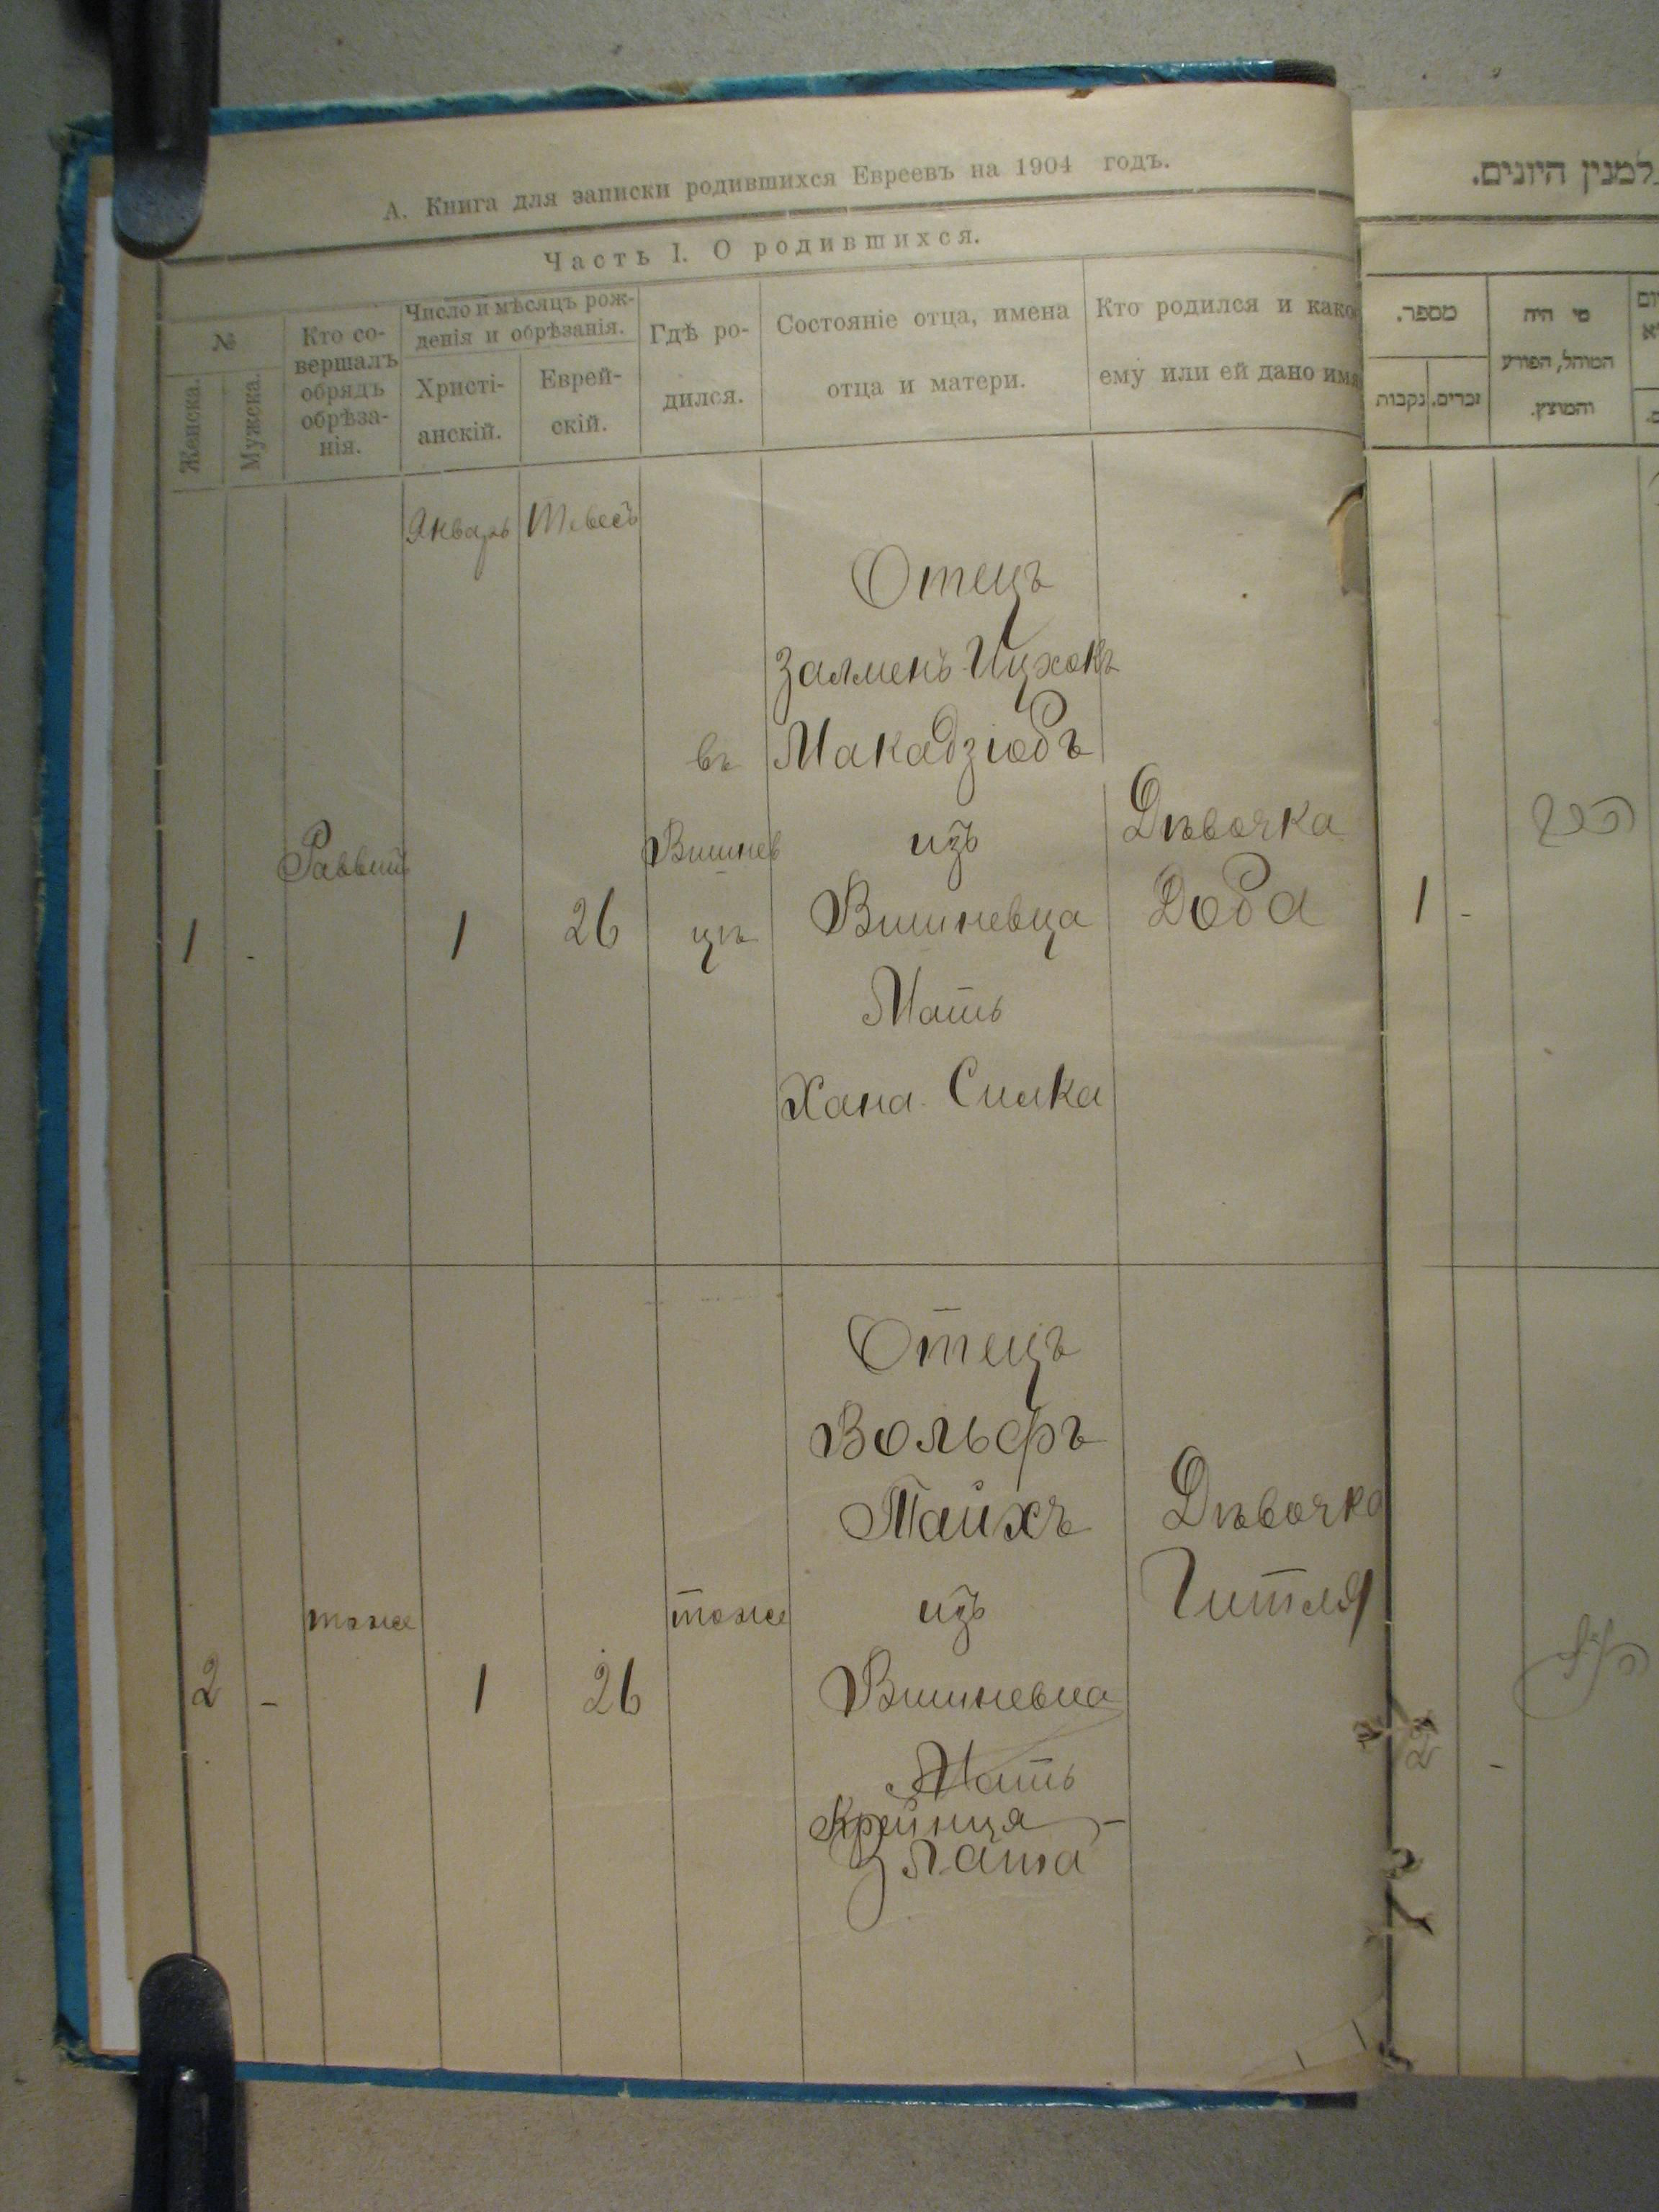 А. Книга для записки родившихся Евреевъ на 1904 годъ.
Часть I. О родившихся.
№
Женска.
Мужска.
Кто со-
вершалъ
обрядъ
обрѣза-
нія.
Число и мѣсяцъ рож-
денія и обрѣзанія.
Христі-
анскій.
Еврей-
скій.
Гдѣ ро-
дился.
Состояніе отца, имена
отца и матери.
Кто родился и како
ему или ей дано имя
Январь
Тевесъ
1
-
Раввинъ
1
26
въ
Вишнев
цѣ
Отецъ
Залменъ-Ицхокъ
Макадзюбъ
изъ
Вишневца
Мать
Хана-Симка
Дѣвочка
Доба
2
-
тоже
1
26
тоже
Отецъ
Вольфъ
Тайхъ
изъ
Вишневца
Мать
Крейнця-
Злата
Дѣвочка
Гитля
למנין היונים.
מספר.
נקבות
זכרים.
מי היה
המוהל, הפורע
והמוצץ.
1
-
2
-